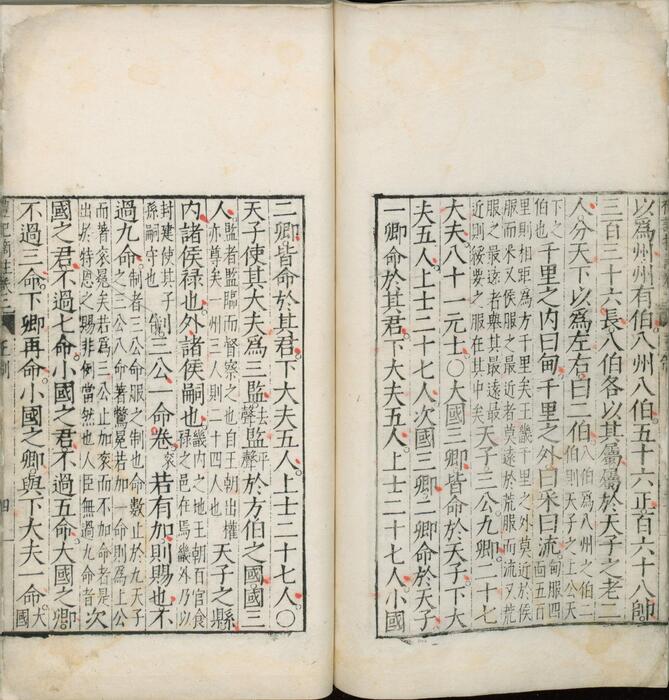 以為州州有伯八州八伯五十六正百六十八帥
三百三十六長八伯各以其屬屬於天子之老二
人分天下以為左右曰二伯八伯為八州之伯二伯則天子之上公天
下之伯也千里之内曰甸千里之外曰采曰流甸服四面五百
里則相距為方千里矣王畿千里之外莫近於侯服而采又侯服之最近者莫遠於荒服而流又荒
服之最遠者舉其最遠最近則綏要之服在其中矣天子三公九卿二十七
大夫八十一元士○大國三卿皆命於天子下大
夫五人上士二十七人次國三卿二卿命於天子
一卿命於其君下大夫五人上士二十七人小國
二卿皆命於其君下大夫五人上士二十七人○
天子使其大夫為三監去聲監平聲於方伯之國國三
人監者監臨而督察之也自王朝出權亦尊矣一州三人則二十四人也天子之縣
内諸侯禄也外諸侯嗣也畿内之地王朝百官食禄之邑在焉畿外乃以
封建使其子孫嗣守也制三公一命卷衮若有加則賜也不
過九命制者三公命服之制也命數止於九天子之三公八命著鷩冕若加一命則為上公
而著衮冕矣若為三公止加衮而不加命者是出於特恩之賜非例當然也人臣無過九命者次
國之君不過七命小國之君不過五命大國之卿
不過三命下卿再命小國之卿與下大夫一命大國
王制
四